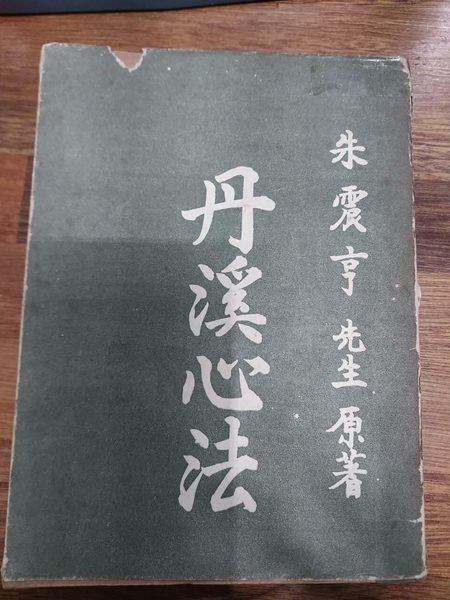 朱震亨先生原著
丹溪心法